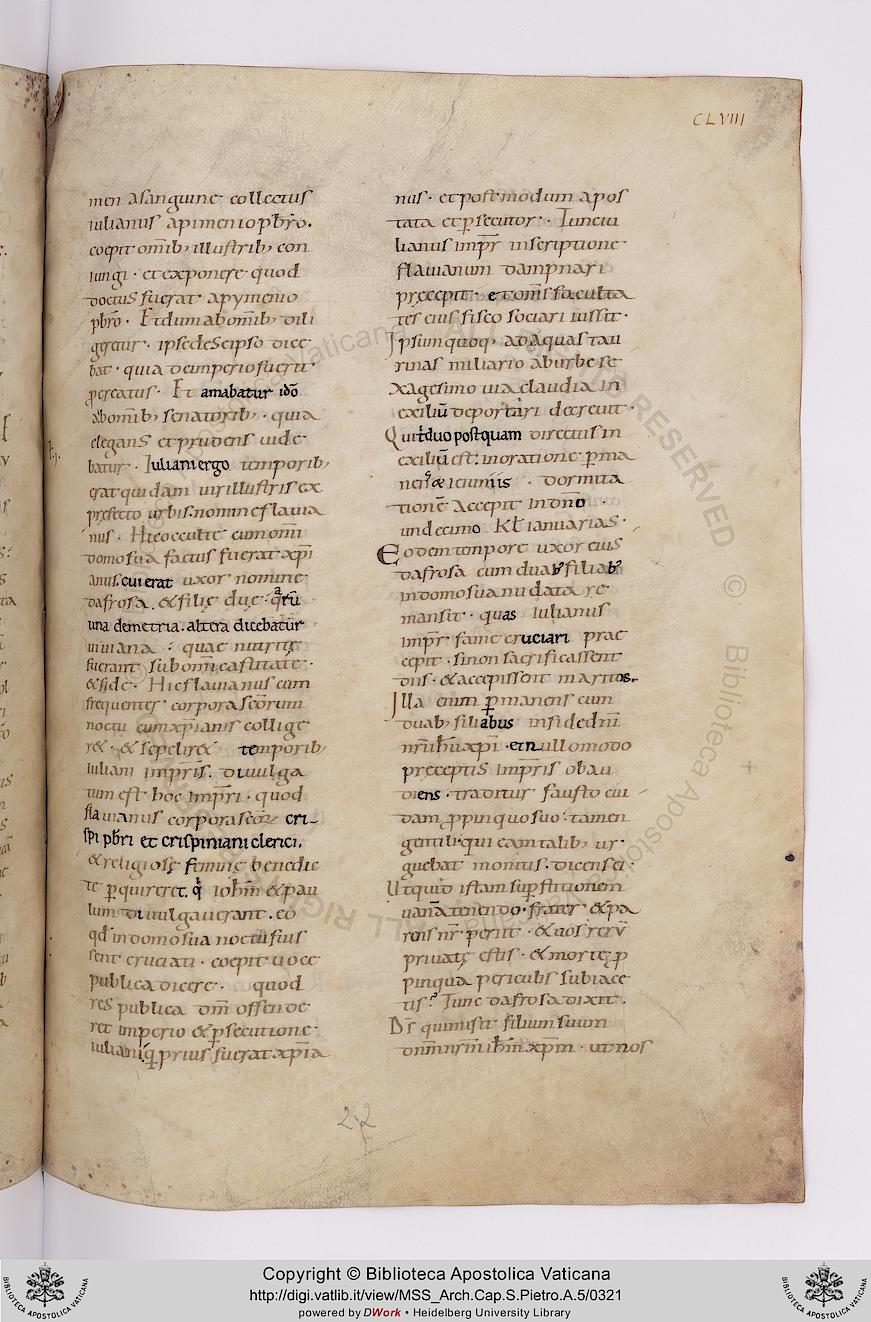 CLVIII
men asanguine collectus
iulianus apimenio pbr̄o.
coepit om̄ib; illustrib; con
iungi · et exponere quod
doctus fuerat apymenio
pbr̄o · Et dum abom̄ib; dili
geretur · ipse de seipso dice
bat · quia de imperio fuerit
p̱creatus · Et amabatur id̄o
abom̄ib; senatorib; · quia
elegans et prudens uide
batur · Iuliani ergo temporib;
erat quidam uir illustris ex
prefecto urbis nomine flauia
nus · Hic occulte cum omni
domo sua factus fuerat xp̄i
anus. cui erat uxor nomine
dafrosa . & filię duę · quarū
una demetria. altera dicebatur
uiuiana · quae nutritę
fuerant sub om̄i castitate ·
& fide · Hic flauianus cum
frequenter corpora sc̄orum
noctu cum xp̄ianis collige
r& · & sepelir& temporib;
iuliani imprīs. diuulga
tum est hoc imprī · quod
flauianus corpora sc̄oꝝ cri-
spi pbr̄i et crispiniani clerici.
& religiosę feminę benedic
te p̱quireret. q' ioh̄m & pau
lum diuulgauerant. eo
qd̄ in domo sua noctu fuis
sent cruciati · coepit uoce
publica dicere · quod
res publica dm̄ offende
ret imperio & p̱secutione
iuliani · q̱ prius fuerat xp̄ia
nus · et postmodum apos
tata et p̱secutor · Tunc iu
lianus imp̄r inscriptione
flauianum dampnari
precepit · et om̄s faculta
tes eius fisco sociari iussit ·
Ipsum quoq; ad aquas tau
rinas miliario ab urbe se
xagesimo uia claudia in
exiliū deportari decreuit ·
Qui t̄duo postquam directus in
exiliū est: in oratione p̱ma
nens & ieiuniis · dormita
tionē accepit in dn̄o
undecimo kl̄ ianuarias ·
Eodem tempore uxor eius
dafrosa cum duab; filiab;
in domo sua nudata re
mansit · quas iulianus
imp̄r fame cruciari prae
cepit · si non sacrificassent
diis · & accepissent maritos.
Illa enim p̱manens cum
duab; filiabus in fide dn̄i
nr̄i ih̄u xp̄i · et nullo modo
preceptis imprīs obau
diens · traditur fausto cui
dam p̱pinquo suo · tamen
gentili · qui eam talib; ur
guebat monitis . dicens ei ·
Ut quid istam sup̱stitionem
uanā tenendo · frater & pa
rens nr̄ periit · & uos rerū
priuatę estis · & morte p̱
pinqua periculis subiace
tis? Tunc dafrosa dixit .
Dr̄ qui misit filium suum
dnm̄ nrm̄ ih̄m xp̄m · ut nos
242
Copyright © Biblioteca Apostolica Vaticana
http://digi.vatlib.it/view/MSS_Arch.Cap.S.Pietro.A.5/0321
powered by DWork • Heidelberg University Library